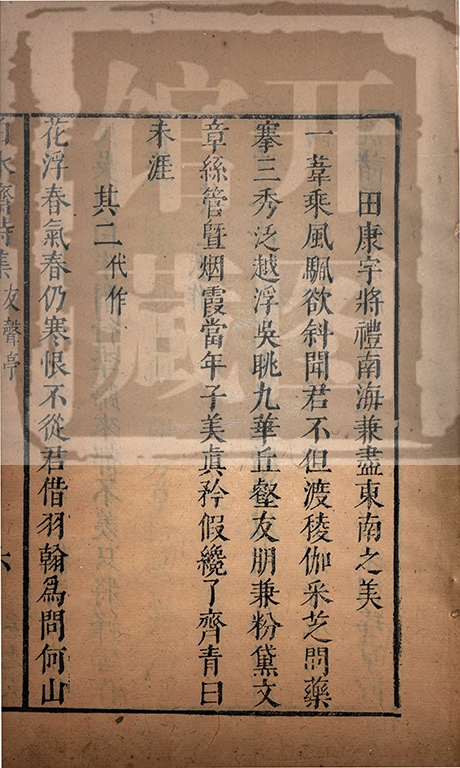 田康宇將禮南海兼盡東南之美
一葦乘風颿欲斜聞君不但渡稜伽采芝問藥
搴三秀泛越浮吳眺九華丘壑友朋兼粉黛文
章絲管暨烟霞當年子美真矜假纔了齊青日
未涯
其二代作
花浮春氣春仍寒恨不從君借羽翰為問何山
水齋詩集 友聲亭 六
开 馆 藏